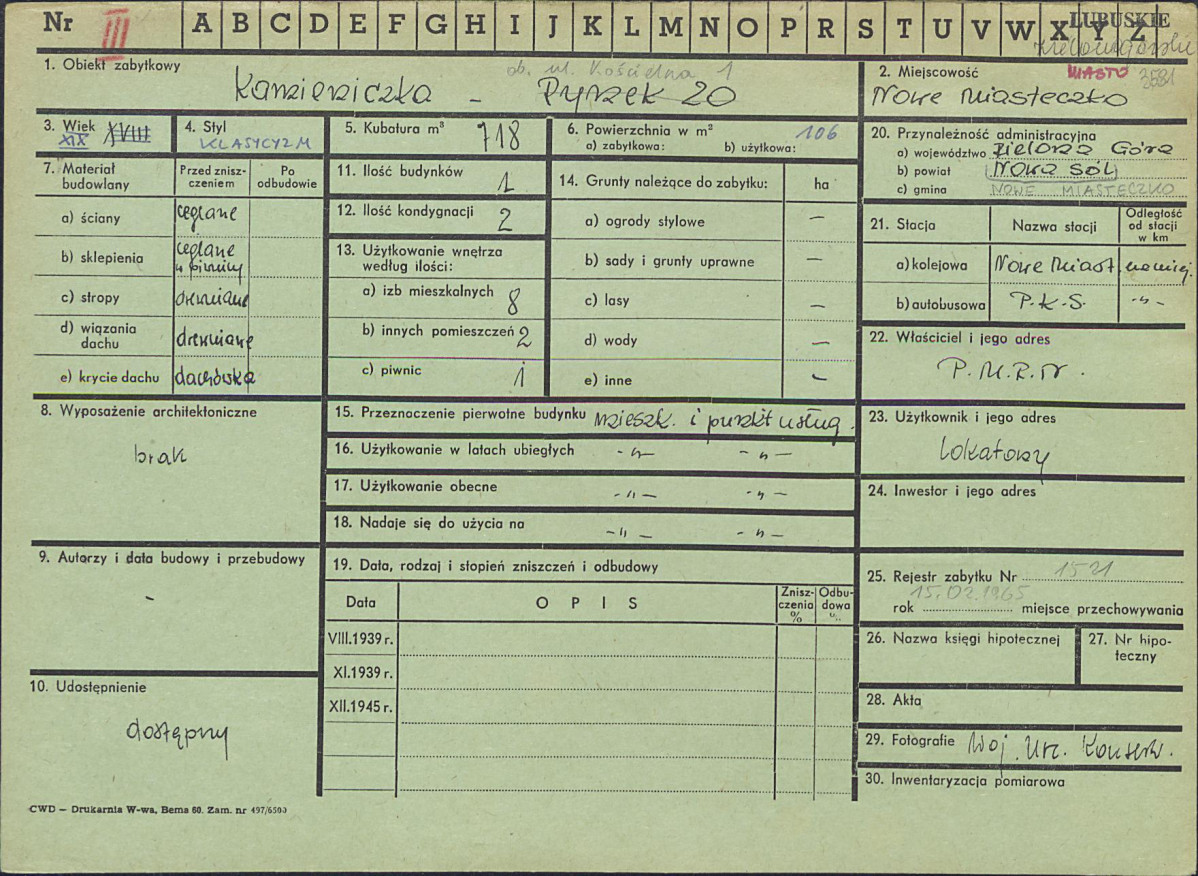 Nr III A B C D E F G H I J K L M N O P R S T U V W X Y Z
LUBUSKIE
zielonogórskie
MIASTO 3581
1. Obiekt zabytkowy
ob. ul. Kościelna 1
Kamieniczka - Rynek 20
2. Miejscowość
Nowe Miasteczko
3. Wiek
XIX XVIII
4. Styl
KLASYCYZM
5. Kubatura m³ 718
6. Powierzchnia w m² 106
a) zabytkowa: b) użytkowa:
20. Przynależność administracyjna
a) województwo Zielona Góra
b) powiat Nowa Sól
c) gmina NOWE MIASTECZKO
7. Materiał budowlany
Przed zniszczeniem
Po odbudowie
a) ściany ceglane
b) sklepienia ceglane
w piwnicy
c) stropy drewniane
d) wiązania dachu drewniane
e) krycie dachu dachówka
11. Ilość budynków 1
12. Ilość kondygnacji 2
13. Użytkowanie wnętrza
według ilości:
a) izb mieszkalnych 8
b) innych pomieszczeń 2
c) piwnic 1
14. Grunty należące do zabytku: ha
a) ogrody stylowe —
b) sady i grunty uprawne —
c) lasy —
d) wody —
e) inne —
21. Stacja
Nazwa stacji
Odległość od stacji w km
a) kolejowa Nowe Miast na miej.
b) autobusowa P.K.S. -"-
22. Właściciel i jego adres
P.M.R.N.
8. Wyposażenie architektoniczne
brak
15. Przeznaczenie pierwotne budynku mieszk. i punkt usług.
16. Użytkowanie w latach ubiegłych -"- -"-
17. Użytkowanie obecne -"- -"-
18. Nadaje się do użycia na -"- -"-
23. Użytkownik i jego adres
Lokatorzy
24. Inwestor i jego adres
9. Autorzy i data budowy i przebudowy
-
19. Data, rodzaj i stopień zniszczeń i odbudowy
Data
OPIS
Zniszczenia %
Odbudowa %
VIII.1939 r.
XI.1939 r.
XII.1945 r.
25. Rejestr zabytku Nr 1521
15.02.1965
rok miejsce przechowywania
26. Nazwa księgi hipotecznej
27. Nr hipoteczny
10. Udostępnienie
dostępny
28. Akta
29. Fotografie Woj. Urz. Konserw.
30. Inwentaryzacja pomiarowa
CWD — Drukarnia W-wa, Bema 60. Zam. nr 497/6500